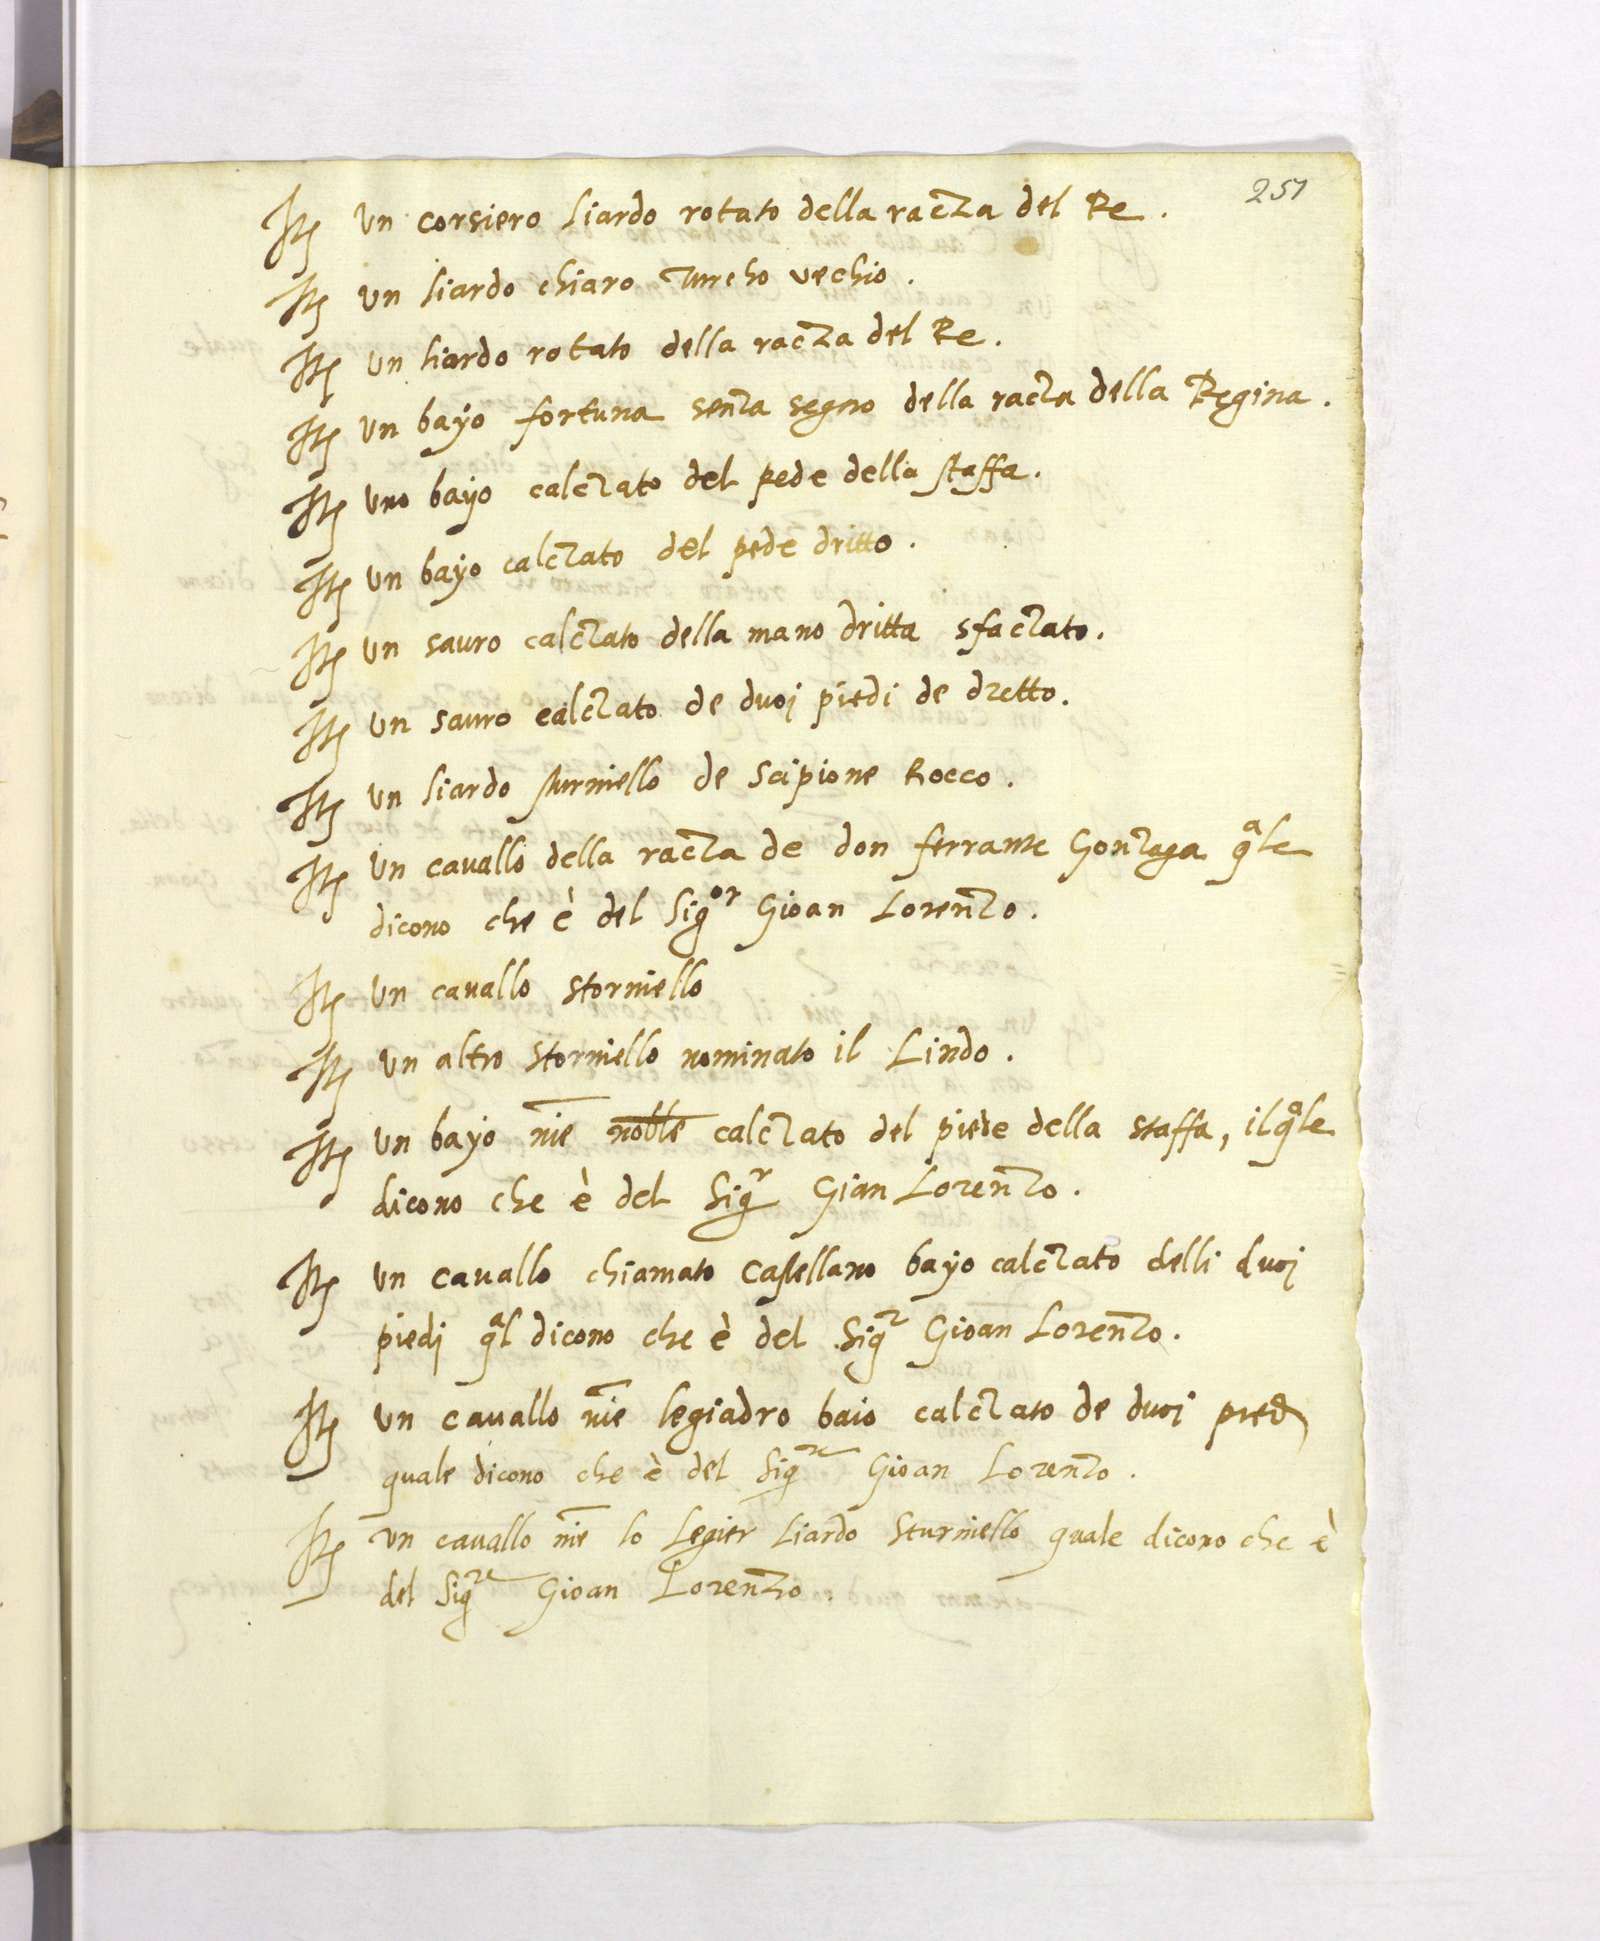 251
Itē un corsiero liardo rotato della raczа del Re.
Itē un liardo chiaro Turcho vechio.
Itē un liardo rotato della racza del Re.
Itē un bayo fortuna senza segno della racza della Regina.
Itē uno bayo calczato del pede della staffa.
Itē un bayo calczato del pede dritto.
Itē un sauro calczato della mano dritta sfaczato.
Itē un sauro calczato de duoj piedi de dretto.
Itē un liardo sturniello de Scipione Rocco.
Itē un cavallo della racza de don ferrante Gonzaga qᵃle
dicono che è del Sigᵒʳ Gioan Lorenzo.
Itē un cavallo storniello
Itē un altro storniello nominato il Lindo.
Itē un bayo nõie noble calczato del piede della staffa, il qᵃle
dicono che è del Sigʳ Gian Lorenzo.
Itē un cavallo chiamato Castellano bayo calczato delli duoj
piedj qᵃl dicono che è del Sigʳ Gioan Lorenzo.
Itē un cavallo nõie legiadro baio calczato de duoj pied
quale dicono che è del Sigʳᵉ Gioan Lorenzo.
Itē un cavallo nõie lo Legier Liardo Sturniello quale dicono che è
del Sigʳᵉ Gioan Lorenzo.